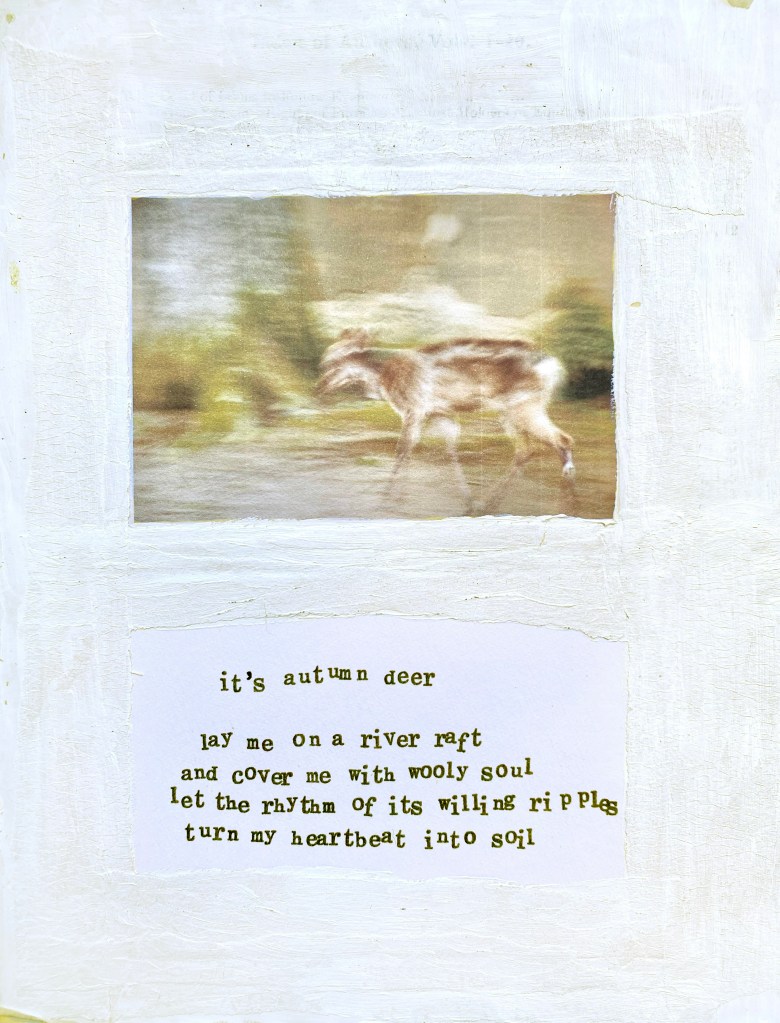 it's autumn deer
lay me on a river raft
and cover me with wooly soul
let the rhythm of its willing ripples
turn my heartbeat into soil